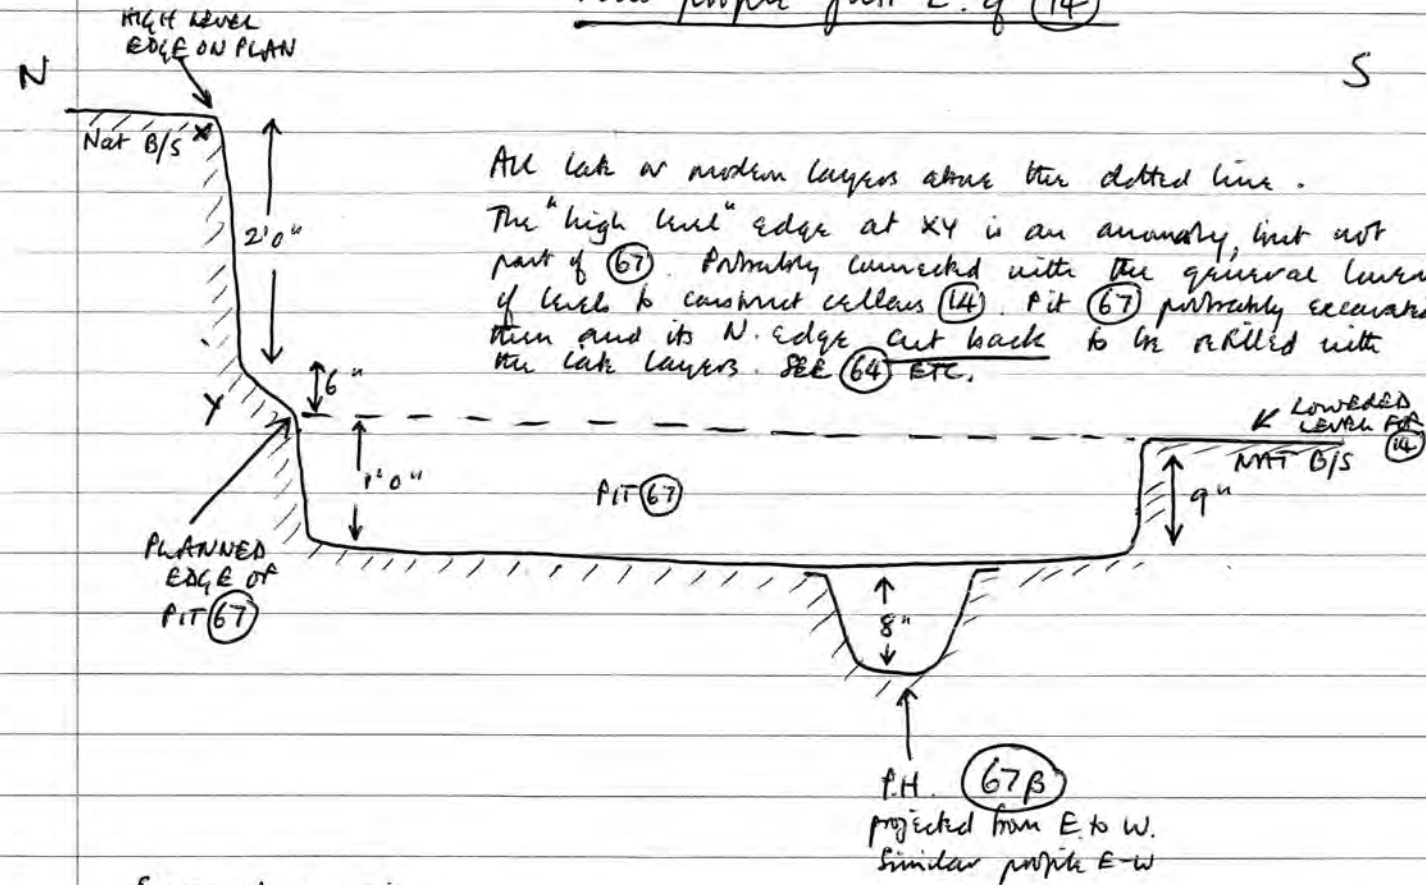 profile just E. of (14)
HIGH LEVEL
EDGE ON PLAN
N
S
Nat B/S X
2'0"
All late or modern layers above the dotted line.
The "high level" edge at XY is an anomaly, but not
part of (67). Probably connected with the general lowering
of levels to construct cellars (14). Pit (67) probably excavated
then and its N. edge cut back to be refilled with
the late layers. SEE (64) ETC.
6"
Y
LOWERED
LEVEL FOR
(14)
NAT B/S
1'0"
PIT (67)
9"
PLANNED
EDGE OF
PIT (67)
8"
P.H. (67β)
projected from E. to W.
Similar profile E-W